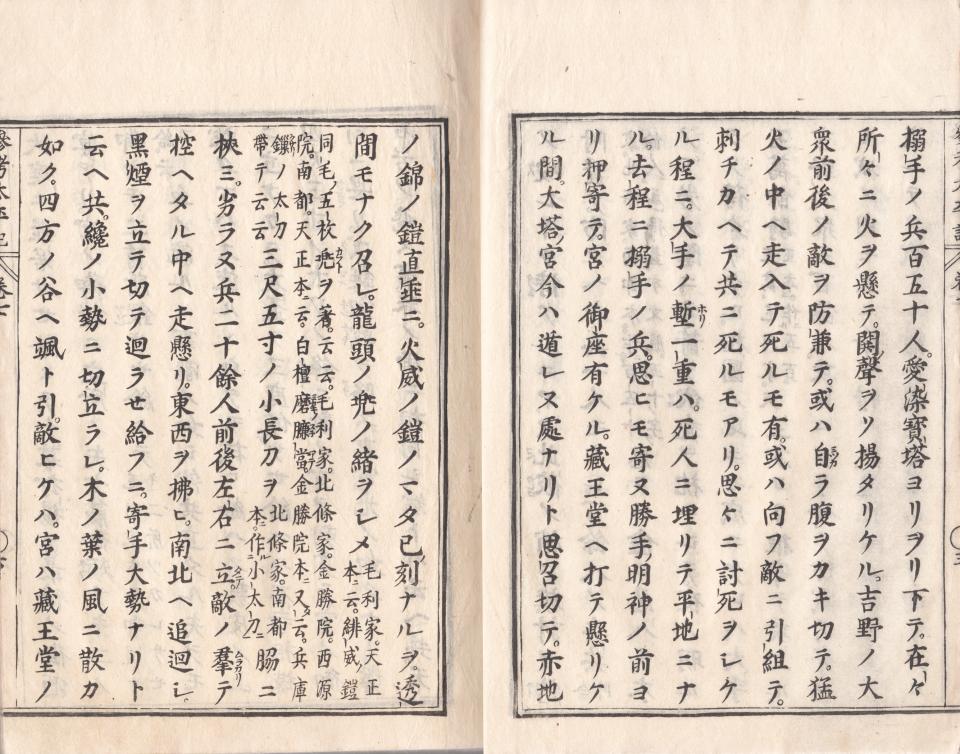 搦手ノ兵百五十人。愛染寶塔ヨリヲリ下テ。在々
所々ニ火ヲ懸テ。鬨聲ヲソ揚タリケル。吉野ノ大
衆前後ノ敵ヲ防兼テ。或ハ自ラ腹ヲカキ切テ。猛
火ノ中ヘ走入テ死ルモ有。或ハ向フ敵ニ引組テ。
刺チカヘテ共ニ死ルモアリ。思々ニ討死ヲシケ
ル程ニ。大手ノ塹一重ハ。死人ニ埋リテ平地ニナ
ル。去程ニ搦手ノ兵。思ヒモ寄ヌ勝手ノ明神ノ前ヨ
リ押寄テ。宮ノ御座有ケル。藏王堂ヘ打テ懸リケ
ル間。大塔宮今ハ遁レヌ處ナリト思召切テ。赤地
ノ錦ノ鎧直垂ニ。火威ノ鎧ノマタ巳刻ナルヲ。透
間モナク召シ。龍頭ノ兜ノ緒ヲシメ 毛利家。天正本云。緋威ノ鎧
同毛ノ五枚兜ヲ著。云云。毛利家。北條家。金勝院。西源
院。南都。天正本云。白檀磨臑當。金勝院本又云。兵庫
鏁ノ太刀帶テ云云 三尺五寸ノ小長刀ヲ 北條家。南都本。作小太刀ニ 脇ニ
挾三。劣ラヌ兵二十餘人前後左右ニ立。敵ノ羣テ
控ヘタル中ヘ走懸リ。東西ヲ拂ヒ。南北ヘ追迴シ。
黑煙ヲ立テ切テ迴ラせ給フニ。寄手大勢ナリト
云ヘ共。纔ノ小勢ニ切立ラレ。木ノ葉ノ風ニ散カ
如ク。四方ノ谷ヘ颯ト引。敵ヒケハ。宮ハ藏王堂ノ
參考太平記 卷七